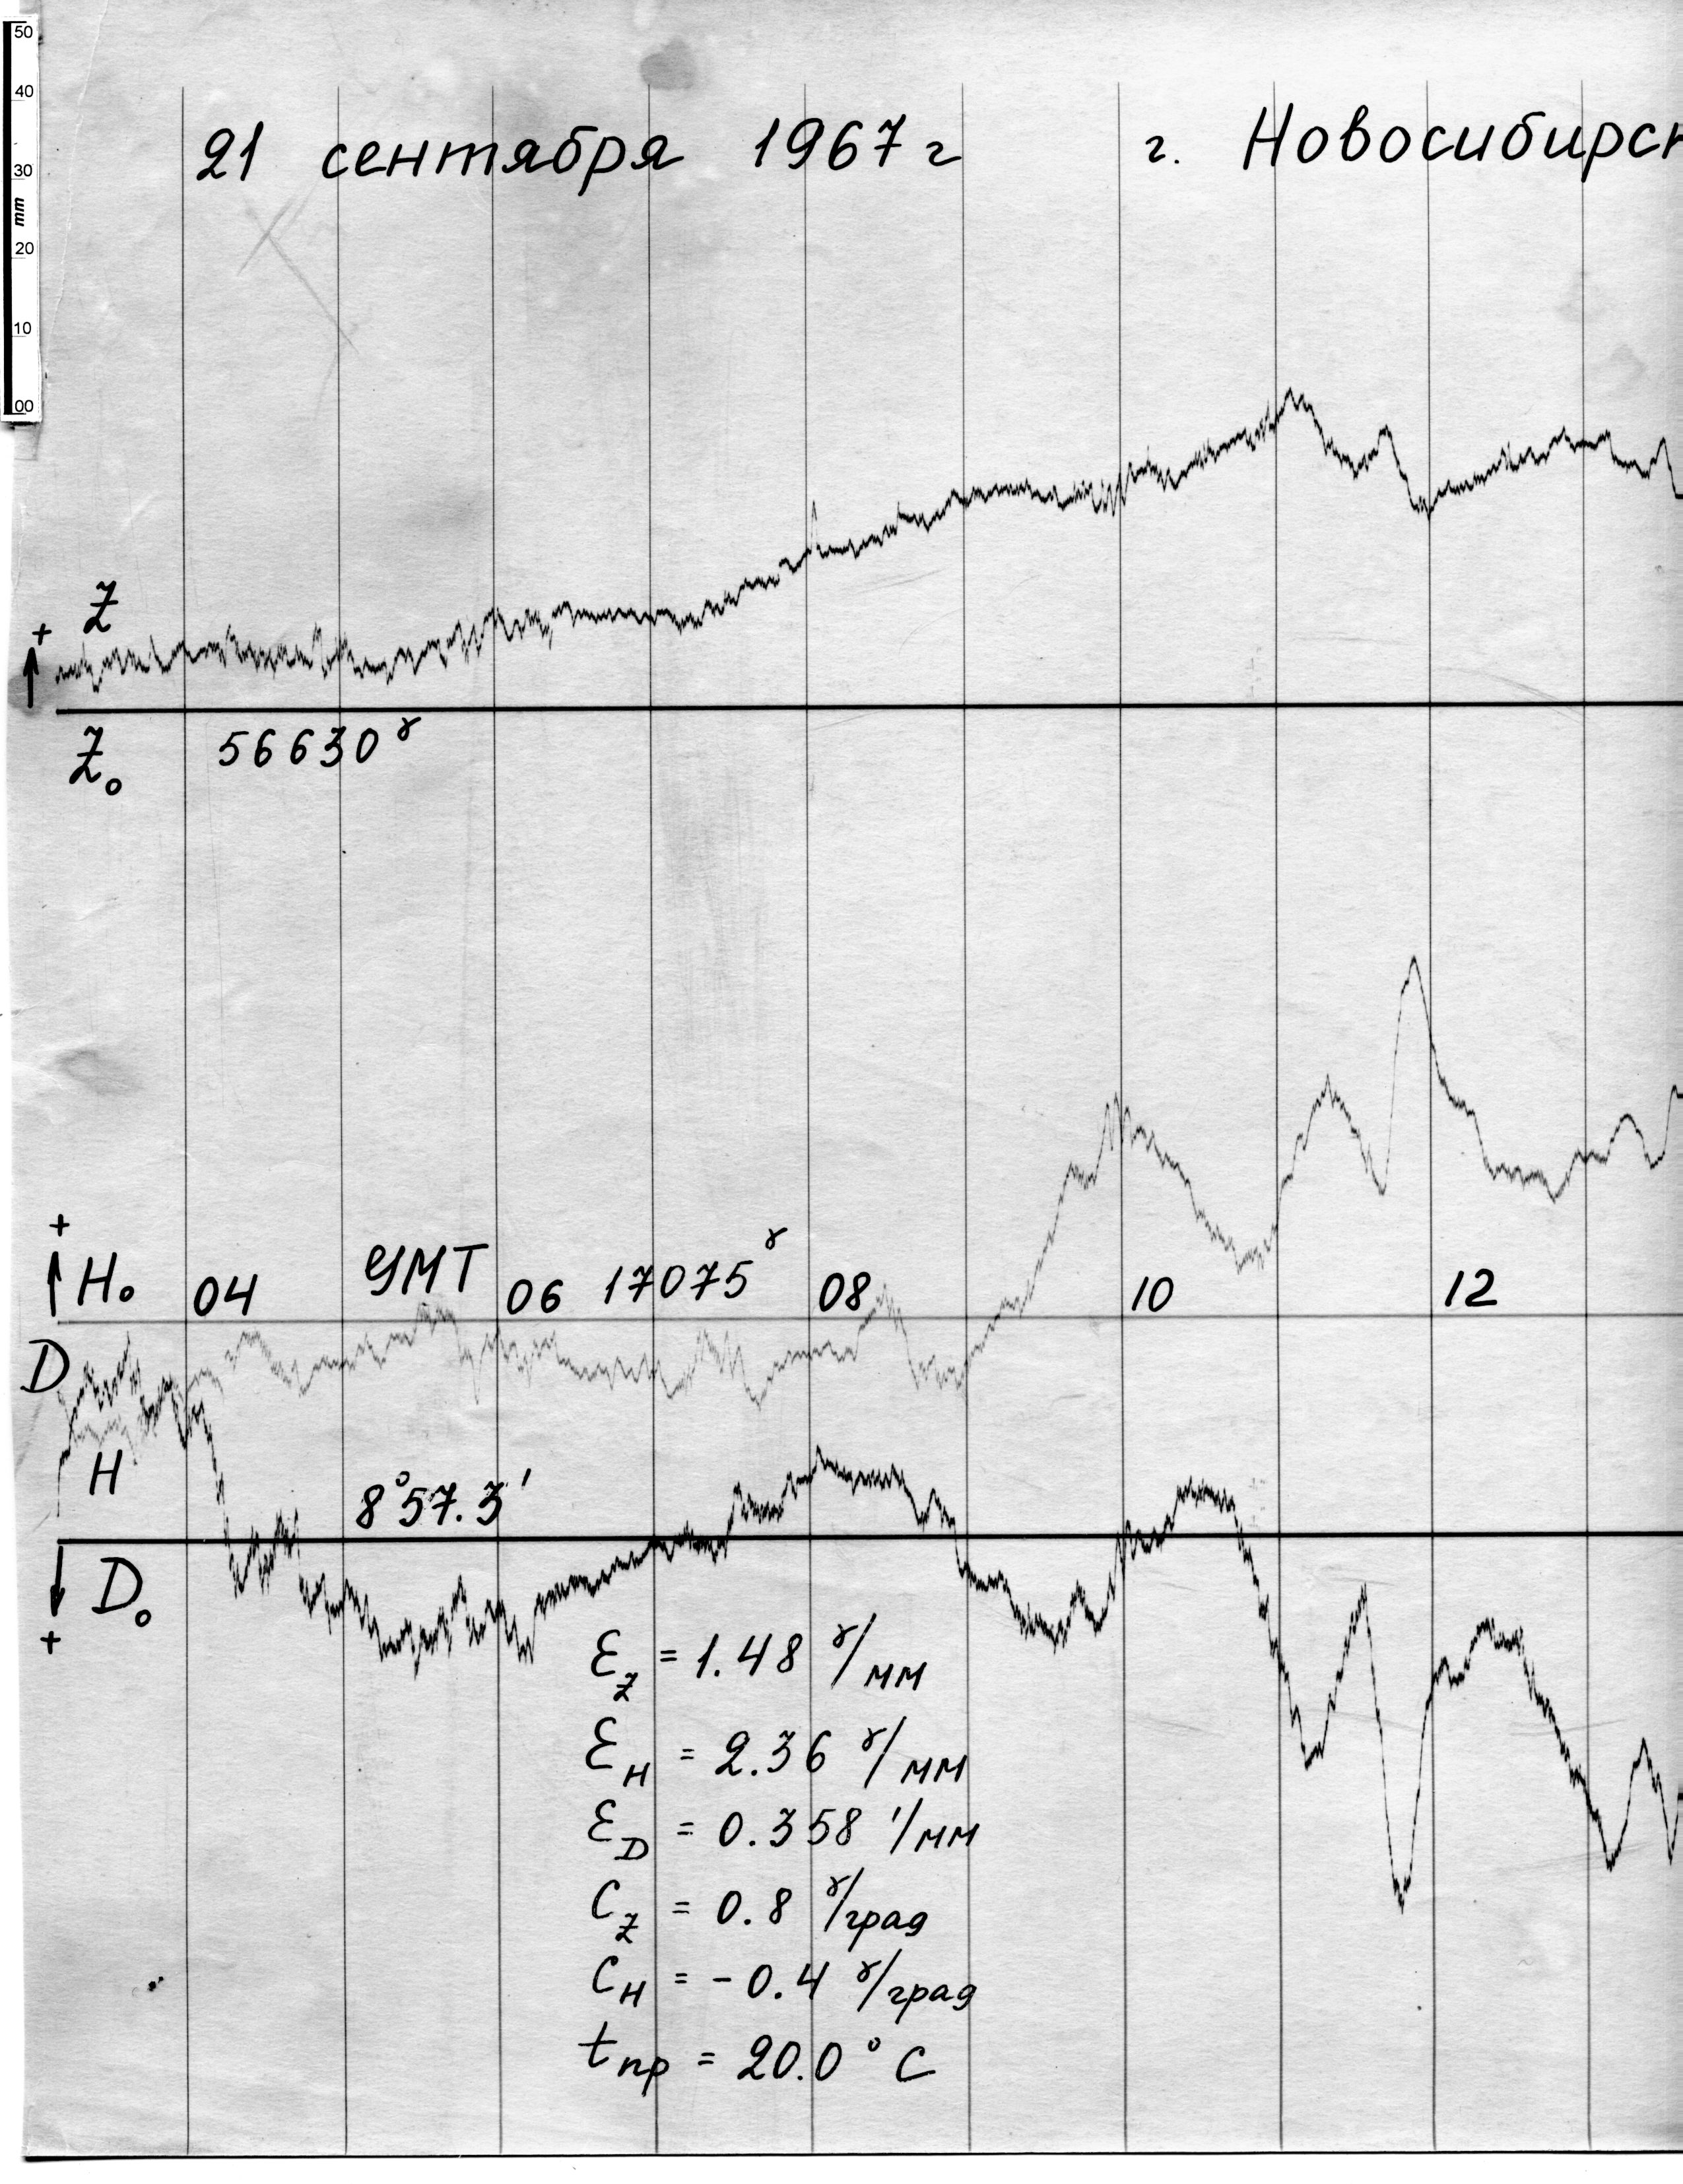 50
40
30
mm
20
10
00
21 сентября 1967 г г. Новосибирск
+
Z
Z₀ 56630ᵞ
+
H₀ 04 УМТ 06 17075ᵞ 08 10 12
D
H
8°57.3'
D₀
+
Ɛ_Z = 1.48 ᵞ/мм
Ɛ_H = 2.36 ᵞ/мм
Ɛ_D = 0.358 '/мм
C_Z = 0.8 ᵞ/град
C_H = -0.4 ᵞ/град
t пр = 20.0° C